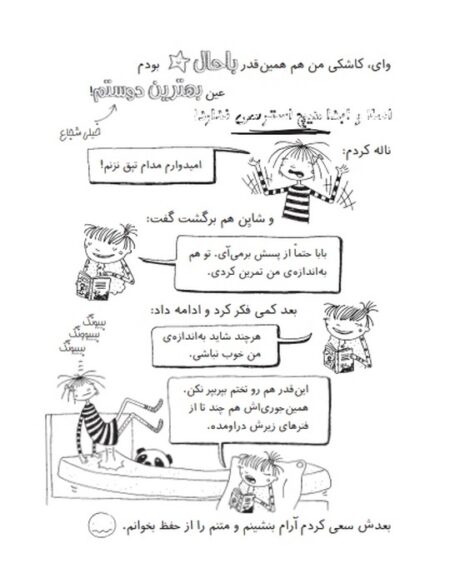 وای، کاشکی من هم همین‌قدر باحال بودم
عین بهترین دوستم!
خیلی شجاع
ناله کردم:
امیدوارم مدام تپق نزنم!
و شاپِن هم برگشت گفت:
بابا حتماً از پسش برمی‌آی. تو هم
به‌اندازه‌ی من تمرین کردی.
بعد کمی فکر کرد و ادامه داد:
هرچند شاید به‌اندازه‌ی
من خوب نباشی.
پییونگ
پییییونگ
پییونگ
این‌قدر هم رو تختم بپربپر نکن.
همین‌جوری‌اش هم چند تا از
فنرهای زیرش دراومده.
بعدش سعی کردم آرام بنشینم و متنم را از حفظ بخوانم.